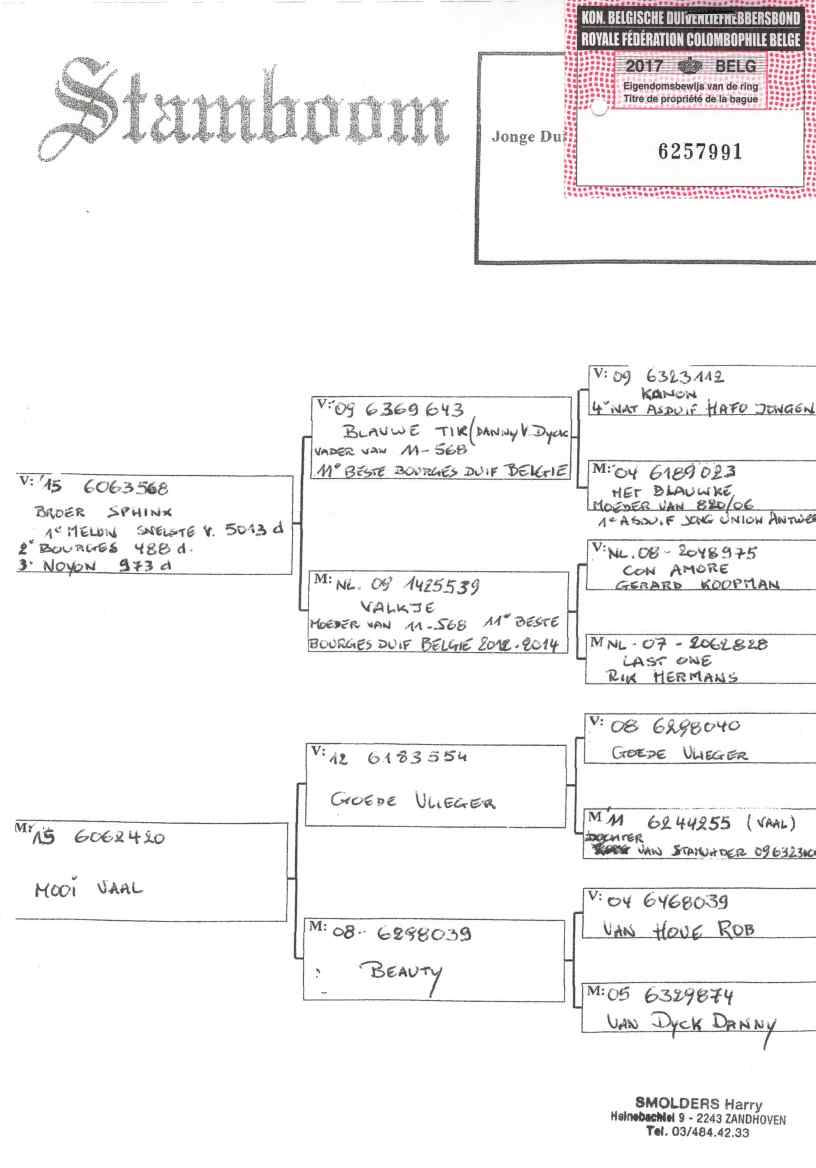 KON. BELGISCHE DUIVENLIEFHEBBERSBOND
ROYALE FÉDÉRATION COLOMBOPHILE BELGE
2017 BELG
Eigendomsbewijs van de ring
Titre de propriété de la bague
6257991
Stamboom
Jonge Dui
V: '15 6063568
BROER SPHINX
1e MELUN SNELSTE V. 5013 d
2e BOURGES 488 d.
3e NOYON 973 d
V: 09 6369643
BLAUWE TIK (DANNY V. DYCK
VADER VAN 11-568
11e BESTE BOURGES DUIF BELGIE
M: NL. 09 1425539
VALKJE
MOEDER VAN 11-568 11e BESTE
BOURGES DUIF BELGIE 2012-2014
V: 09 6323112
KANON
4e NAT ASDUIF HAFO JONGEN
M: 04 6189023
HET BLAUWKE
MOEDER VAN 820/06
1e ASDUIF JONG UNION ANTWE
V: NL. 08 - 2048975
CON AMORE
GERARD KOOPMAN
M NL - 07 - 2062828
LAST ONE
RIK HERMANS
M: 15 6062420
MOOI VAAL
V: 12 6183554
GOEDE VLIEGER
M: 08 - 6298039
BEAUTY
V: 08 6298040
GOEDE VLIEGER
M '11 6244255 (VAAL)
DOCHTER
VAN STAMVADER
V: 04 6468039
VAN HOVE ROB
M: 05 6329874
VAN DYCK DANNY
SMOLDERS Harry
Heinebachlei 9 - 2243 ZANDHOVEN
Tel. 03/484.42.33